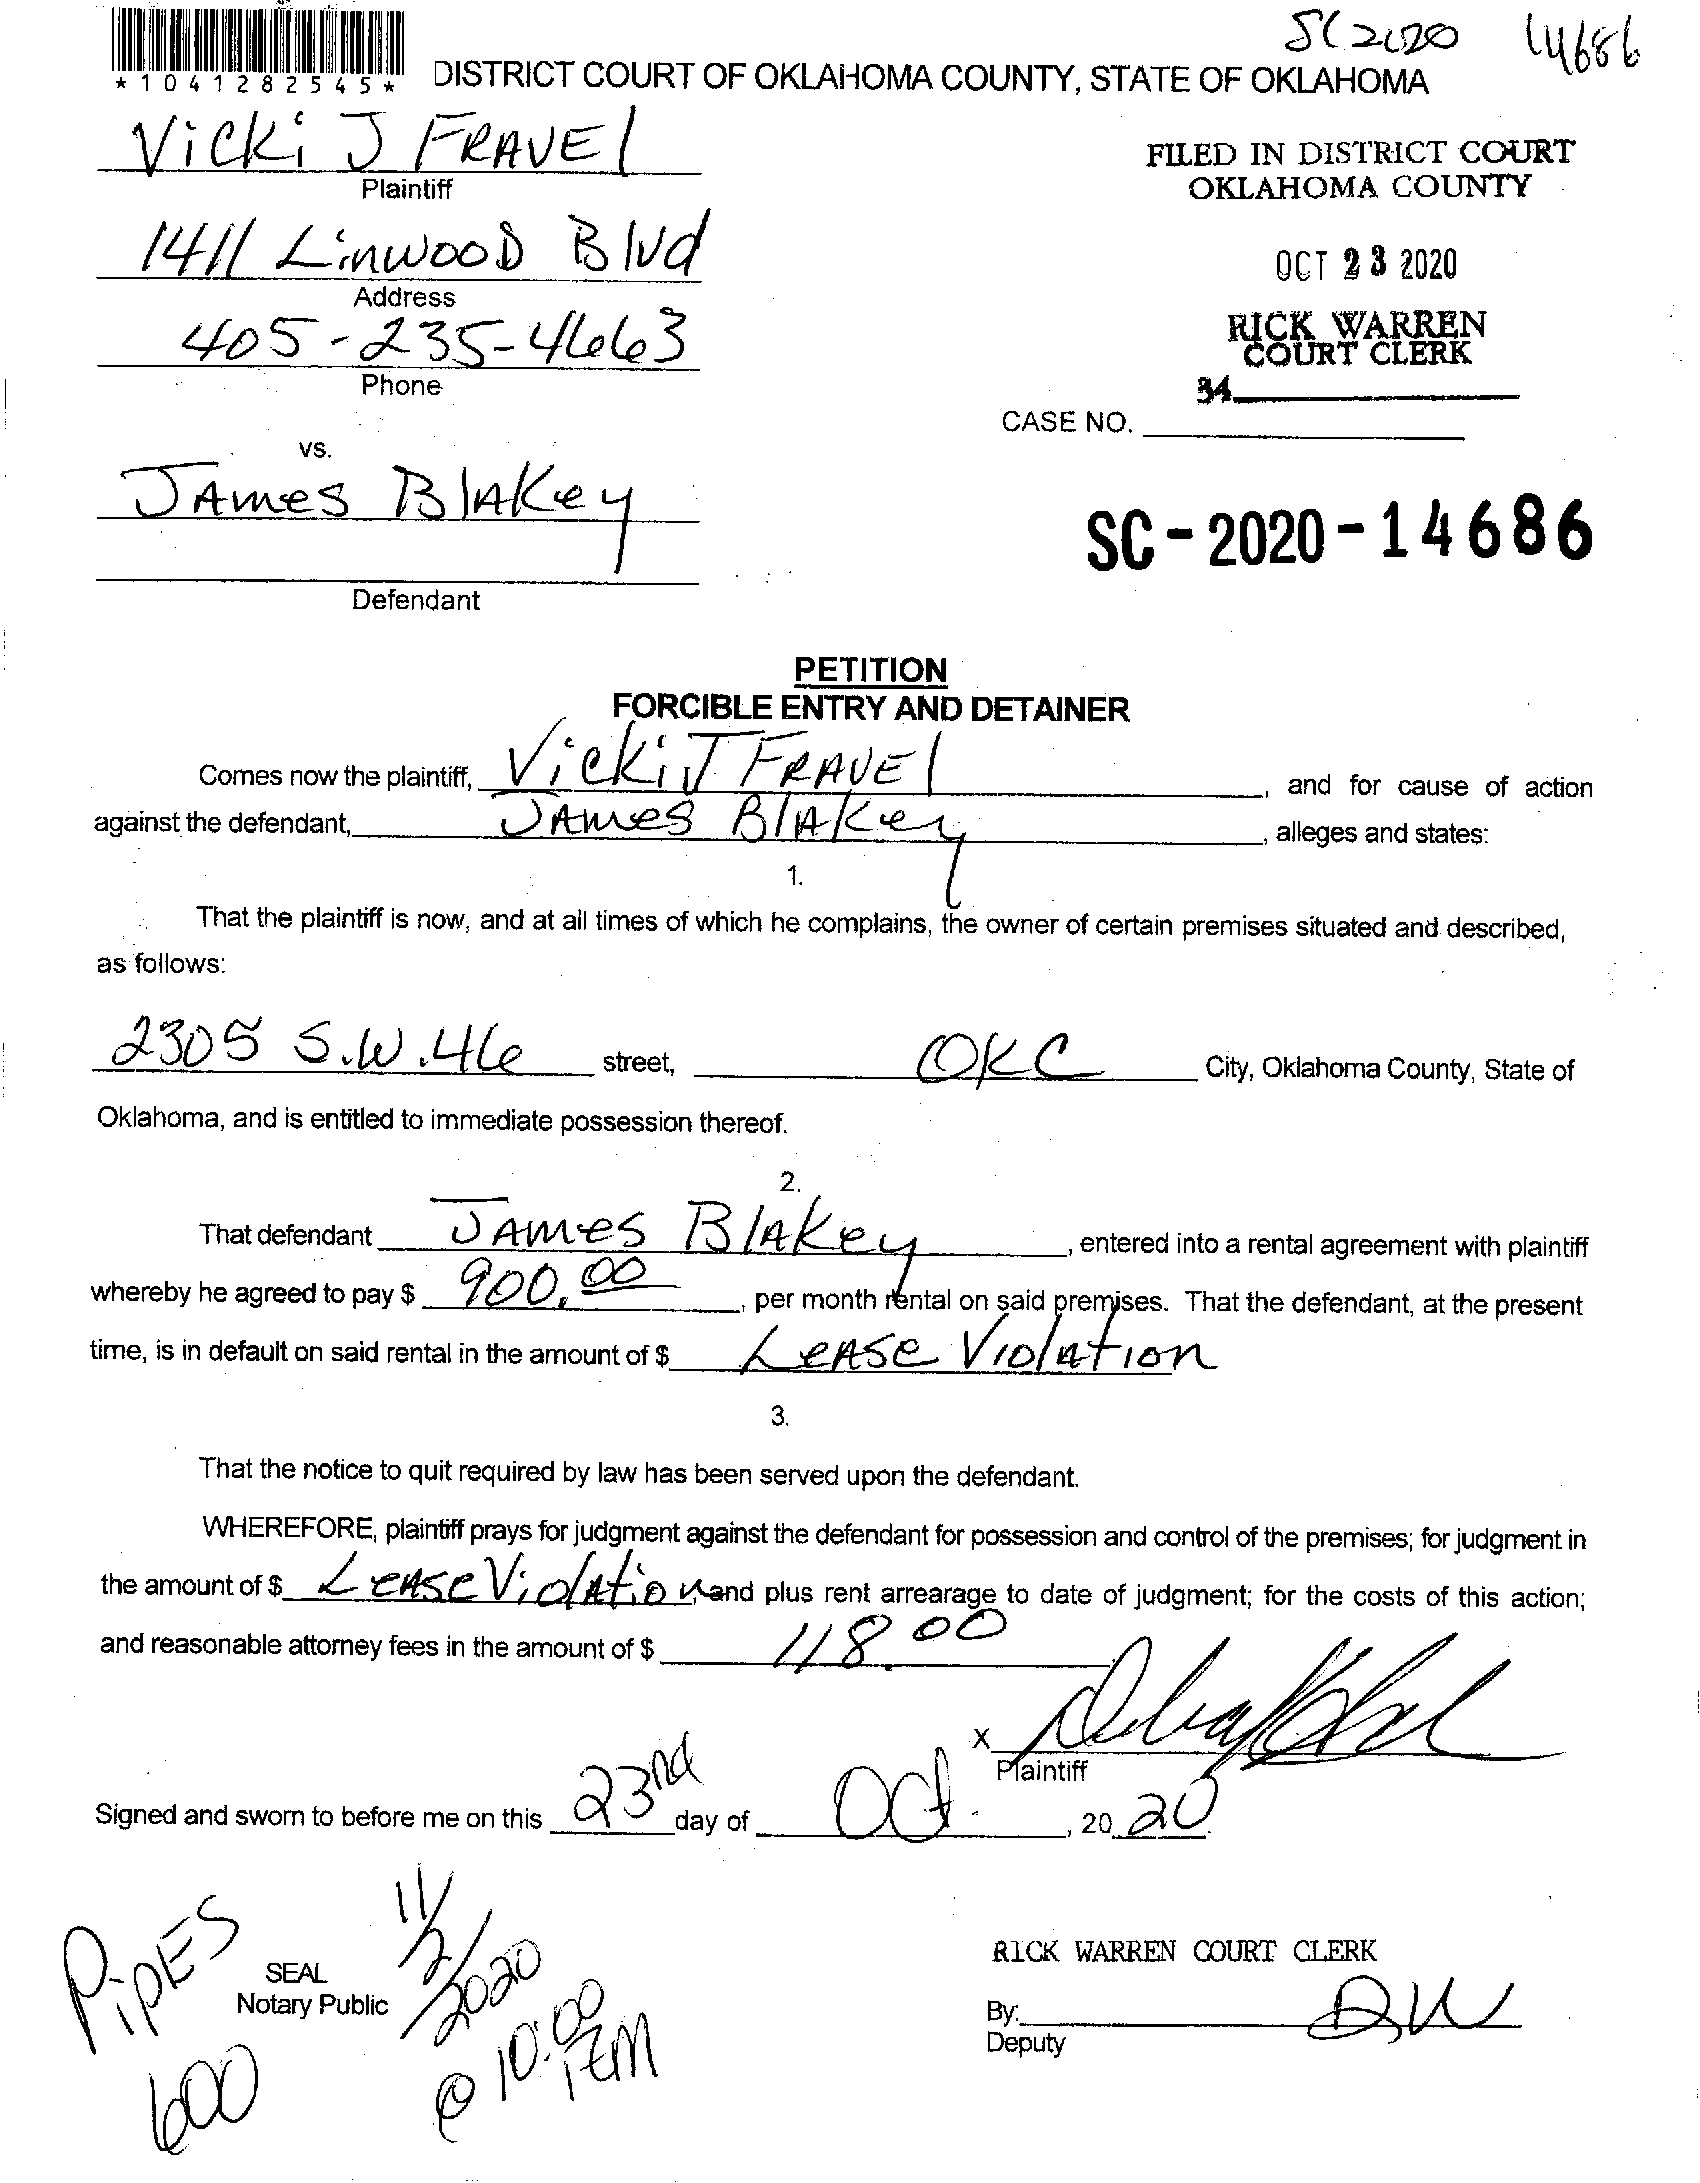 SC 2020 14686
*1041282545*
DISTRICT COURT OF OKLAHOMA COUNTY, STATE OF OKLAHOMA
Vicki J FRAVEl
Plaintiff
FILED IN DISTRICT COURT
OKLAHOMA COUNTY
1411 LinwooD Blvd
Address
OCT 23 2020
405-235-4663
Phone
RICK WARREN
COURT CLERK
34
CASE NO.
vs.
JAmes BlAKey
Defendant
SC-2020-14686
PETITION
FORCIBLE ENTRY AND DETAINER
Comes now the plaintiff, Vicki J FRAVEl, and for cause of action
against the defendant, JAmes BlAKey, alleges and states:
1.
That the plaintiff is now, and at all times of which he complains, the owner of certain premises situated and described,
as follows:
2305 S.W.46 street, OKC City, Oklahoma County, State of
Oklahoma, and is entitled to immediate possession thereof.
2.
That defendant JAmes BlAKey, entered into a rental agreement with plaintiff
whereby he agreed to pay $ 900.00, per month rental on said premises. That the defendant, at the present
time, is in default on said rental in the amount of $ LeASe ViolAtion
3.
That the notice to quit required by law has been served upon the defendant.
WHEREFORE, plaintiff prays for judgment against the defendant for possession and control of the premises; for judgment in
the amount of $ LeASe ViolAtion, and plus rent arrearage to date of judgment; for the costs of this action;
and reasonable attorney fees in the amount of $ 118.00
x
Plaintiff
Signed and sworn to before me on this 23rd day of Oct., 20 20.
PipES
600
SEAL
Notary Public
11/2/2020
@ 10:00
RICK WARREN COURT CLERK
By: DW
Deputy